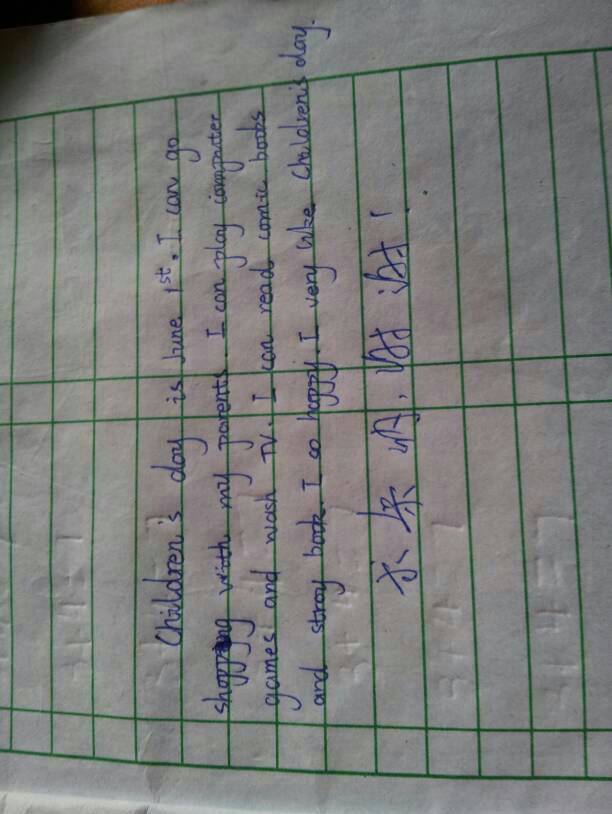 Children's day is June 1st. I can go
shopping with my parents. I can play computer
games and wash TV. I can read comic books
and stroy book. I so happy. I very like Children's day.
求采纳，谢谢！
3+4=7
3+4=7